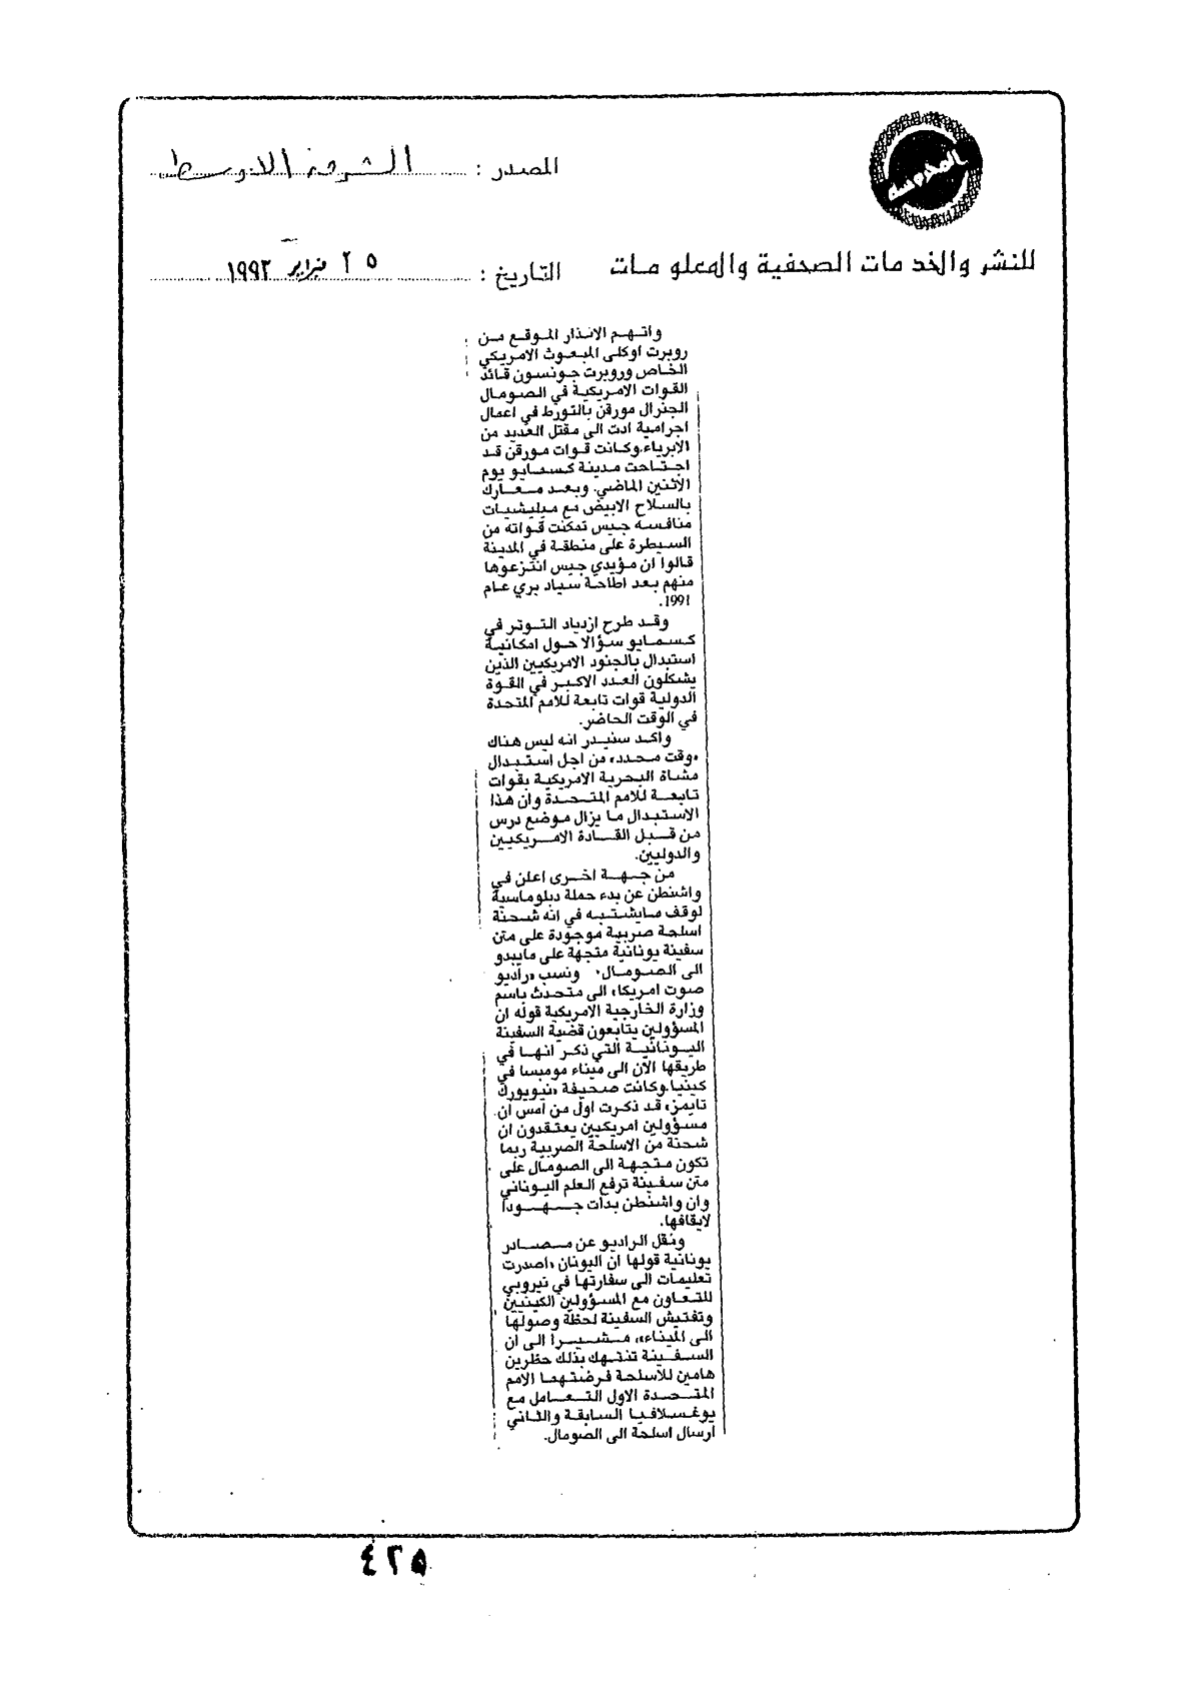 المصدر : الشرق الاوسط
المحروسة
للنشر والخدمات الصحفية والمعلومات
التاريخ : ٢٥ فبراير ١٩٩٣
واتهم الانذار الموقع من
روبرت اوكلى المبعوث الامريكي
الخاص وروبرت جونسون قائد
القوات الامريكية في الصومال
الجنرال مورقن بالتورط في اعمال
اجرامية ادت الى مقتل العديد من
الابرياء.وكانت قوات مورقن قد
اجتاحت مدينة كسمايو يوم
الاثنين الماضي. وبعد معارك
بالسلاح الابيض مع ميليشيات
منافسه جيس تمكنت قواته من
السيطرة على منطقة في المدينة
قالوا ان مؤيدي جيس انتزعوها
منهم بعد اطاحة سياد بري عام
1991.
وقد طرح ازدياد التوتر في
كسمايو سؤالا حول امكانية
استبدال بالجنود الامريكيين الذين
يشكلون العدد الاكبر في القوة
الدولية قوات تابعة للامم المتحدة
في الوقت الحاضر.
واكد سنيدر انه ليس هناك
«وقت محدد» من اجل استبدال
مشاة البحرية الامريكية بقوات
تابعة للامم المتحدة وان هذا
الاستبدال ما يزال موضع درس
من قبل القادة الامريكيين
والدوليين.
من جهة اخرى اعلن في
واشنطن عن بدء حملة دبلوماسية
لوقف مايشتبه في انه شحنة
اسلحة صربية موجودة على متن
سفينة يونانية متجهة على مايبدو
الى الصومال، ونسب «راديو
صوت امريكا» الى متحدث باسم
وزارة الخارجية الامريكية قوله ان
المسؤولين يتابعون قضية السفينة
اليونانية التي ذكر انها في
طريقها الآن الى ميناء مومبسا في
كينيا.وكانت صحيفة «نيويورك
تايمز» قد ذكرت اول من امس ان
مسؤولين امريكيين يعتقدون ان
شحنة من الاسلحة الصربية ربما
تكون متجهة الى الصومال على
متن سفينة ترفع العلم اليوناني
وان واشنطن بدات جهودا
لايقافها.
ونقل الراديو عن مصادر
يونانية قولها ان اليونان «اصدرت
تعليمات الى سفارتها في نيروبي
للتعاون مع المسؤولين الكينيين
وتفتيش السفينة لحظة وصولها
الى الميناء» مشيرا الى ان
السفينة تنتهك بذلك حظرين
هامين للاسلحة فرضتهما الامم
المتحدة الاول التعامل مع
يوغسلافيا السابقة والثاني
ارسال اسلحة الى الصومال.
٤٢٥